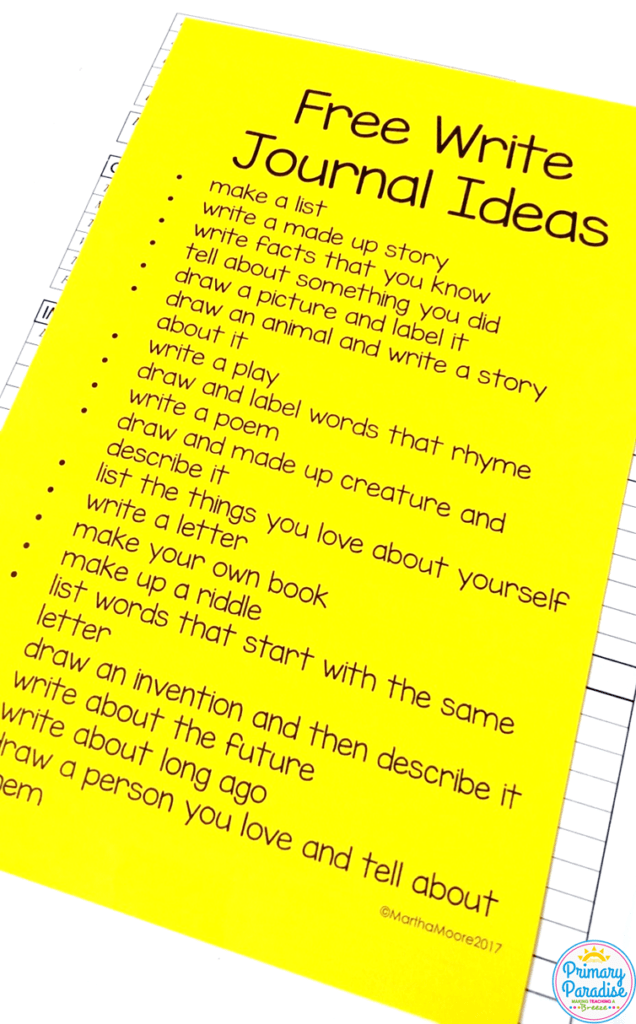 Free Write
Journal Ideas
• make a list
• write a made up story
• write facts that you know
• tell about something you did
• draw a picture and label it
• draw an animal and write a story
about it
• write a play
• draw and label words that rhyme
• write a poem
• draw and made up creature and
describe it
• list the things you love about yourself
• write a letter
• make your own book
• make up a riddle
• list words that start with the same
letter
draw an invention and then describe it
write about the future
write about long ago
draw a person you love and tell about
hem
©MarthaMoore2017
Primary
Paradise
MAKING TEACHING A
Breeze